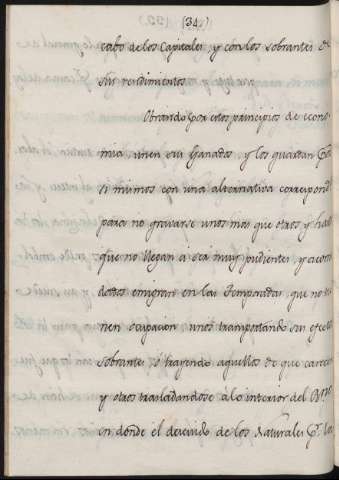 (34.)
cabo de los Capitales, y con los sobrantes de
sus rendimientos.
Obrando por estos principios de econo-
mia unen sus Ganados, y los guardan por
si mismos con una alternativa correspond.
para no gravarse unos mas que otros y hasta
que no llegan a ser muy pudientes, y acomo-
dados emigran en las Temporadas, que no tie-
nen ocupacion, unos transportando sus efectos
sobrantes, ó trayendo aquellos de que carecen
y otros trasladandose a lo interior del Rno.
en donde el descuido de los Naturales p.r las